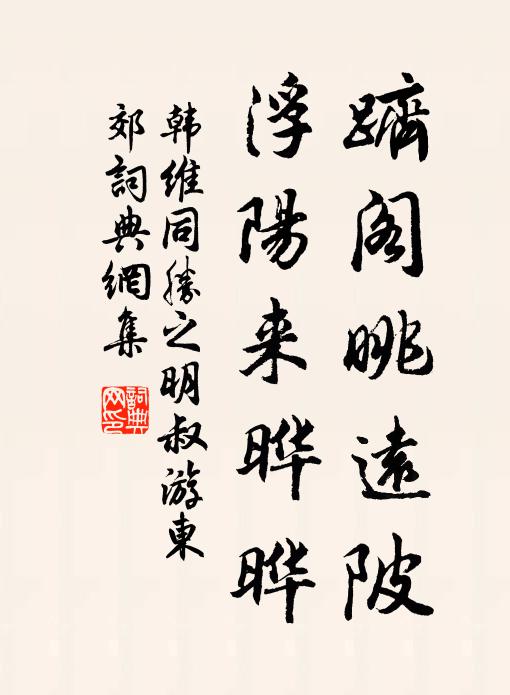 躋阁眺遠陂
浮陽来晔晔
韩维同勝之明叔游東
郊詞典網集
詞典
网印